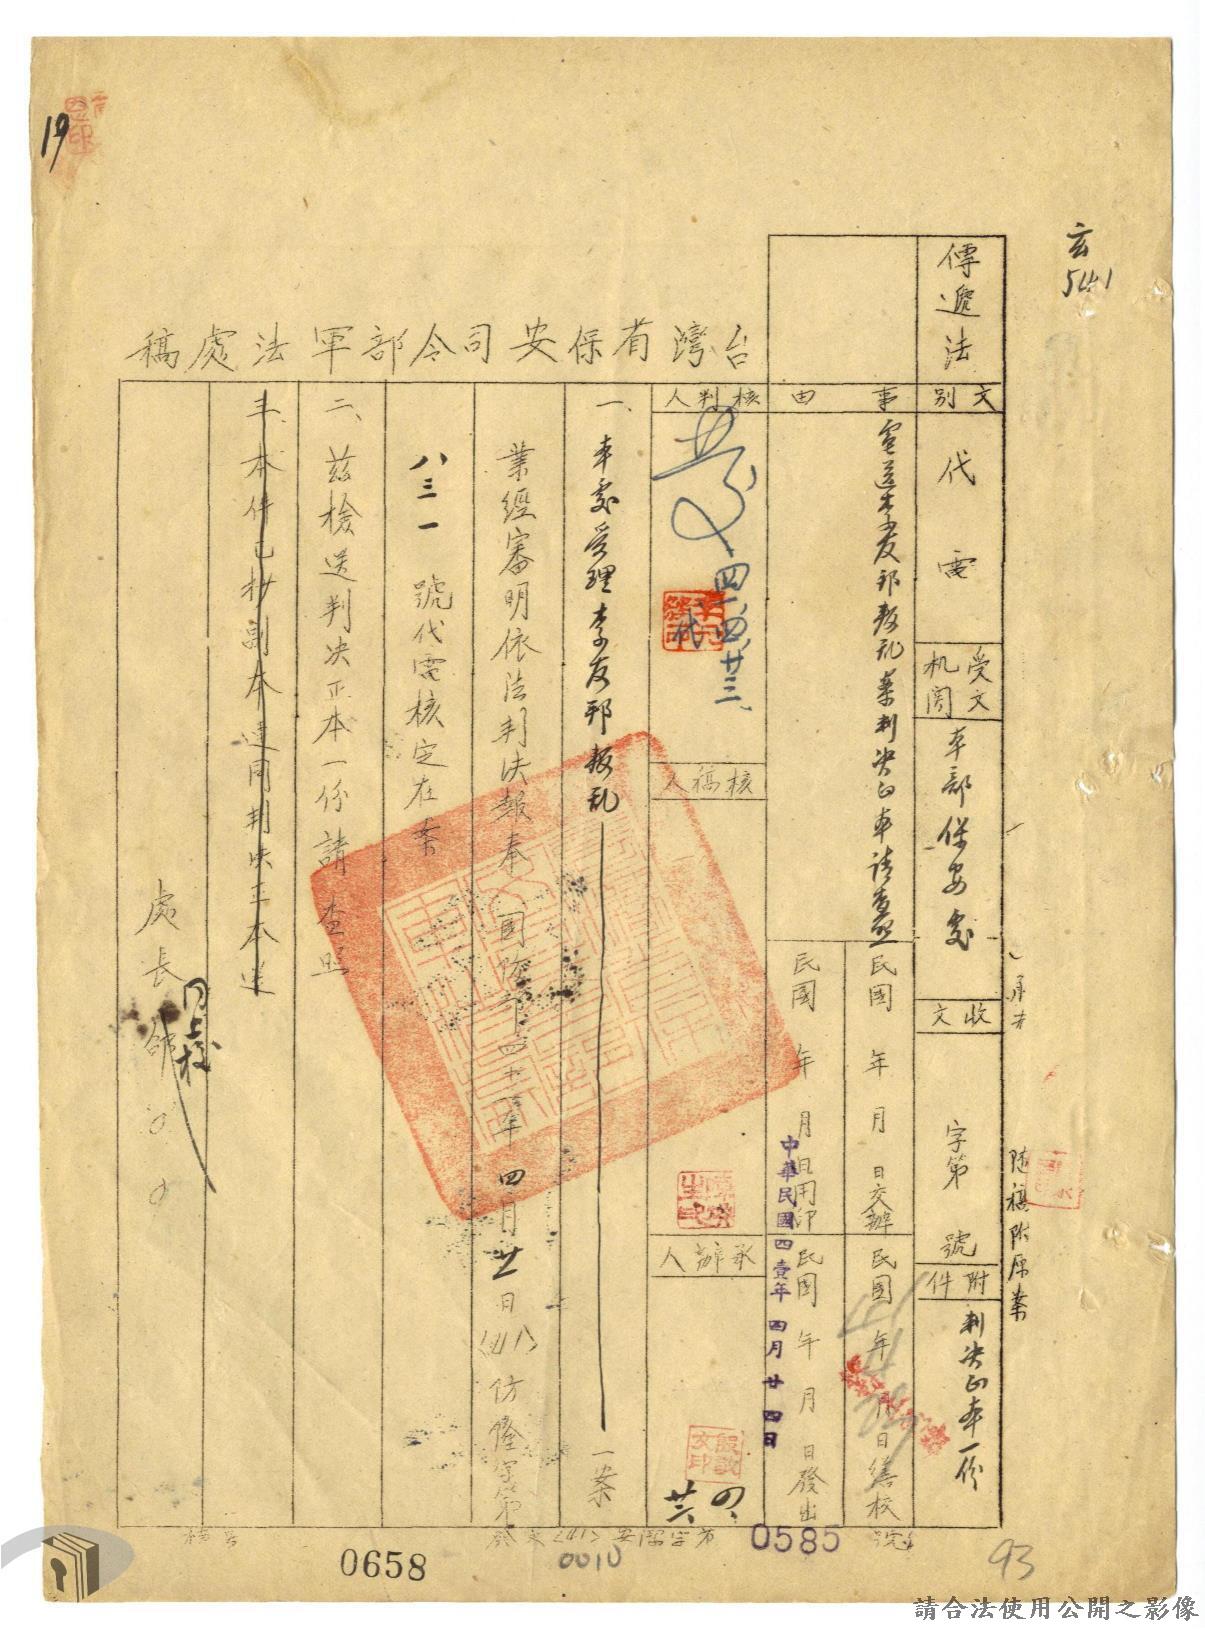 19
玄
541
台灣省保安司令部軍法處稿
傳遞法
文別
代電
受文机関
本部保安處
收文
字第　號
附件
判决正本一份
隨稿附原案
事由
電送李友邦叛乱案判决正本請查照
民國　年　月　日交辦
民國　年　月　日繕校
民國　年　月　日用印
民國　年　月　日發出
中華民國四壹年四月廿四日
核判人
四一、四、廿三、
核稿人
承辦人
一、本處受理李友邦叛乱　一案
業經審明依法判决報奉　國防部四十一年四月廿一日(41)防隆字第
八三一號代電核定在案
二、茲檢送判决正本一份請查照
三、本件已抄副本連同判决正本送
處長
同上校
0585
號
0658
0010
93
請合法使用公開之影像